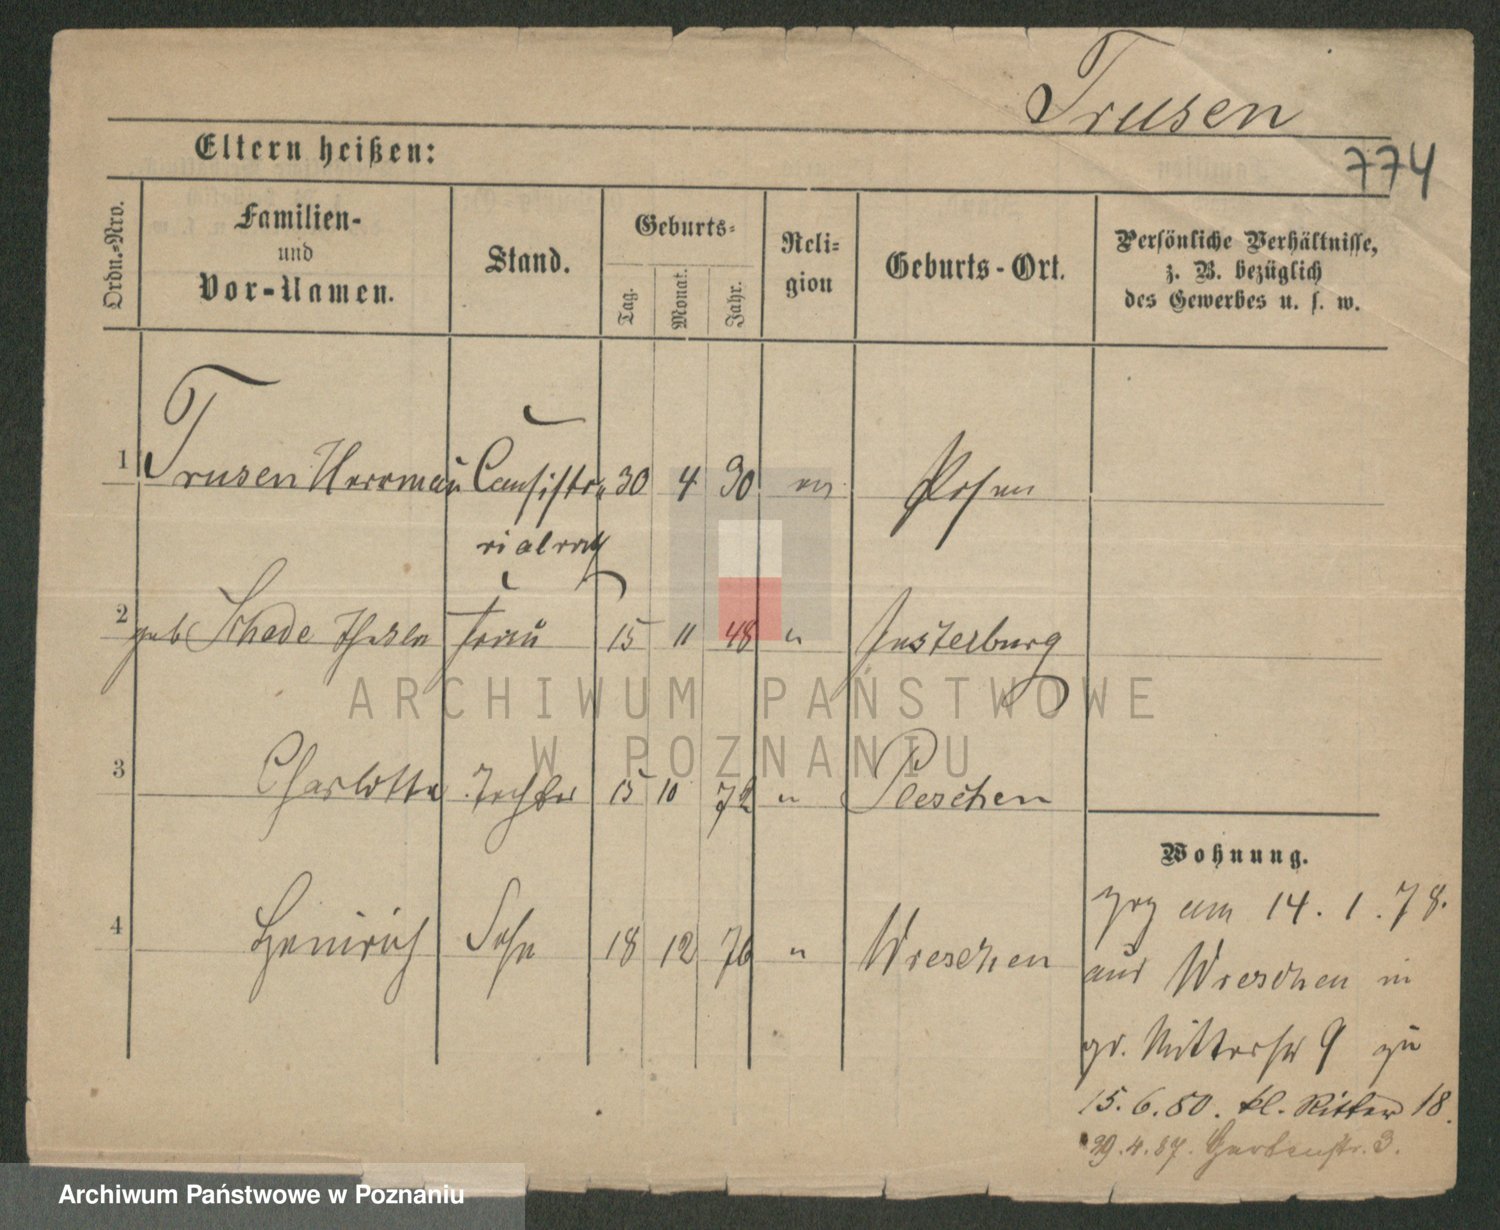 Trusen
774
Eltern heißen:
Ordn.-Nro.
Familien-
und
Vor-Namen.
Stand.
Geburts-
Tag.
Monat.
Jahr.
Reli-
gion
Geburts-Ort.
Persönliche Verhältnisse,
z. B. bezüglich
des Gewerbes u. s. w.
1 Trusen Herrmañ Consisto- 30 4 30 ev Posen
rialrath
2 geb Schade Frau 15 11 48 " Insterburg
3 Charlotte Tochter 15 10 72 " Pleschen
4 Heinrich Sohn 18 12 76 " Wreschen
Wohnung.
zog am 14.1.78.
aus Wreschen in
gr. Ritterstr 9 zu
15.6.80. kl. Ritter 18.
29.4.87. Gartenstr. 3.
ARCHIWUM PAŃSTWOWE
W POZNANIU
Archiwum Państwowe w Poznaniu